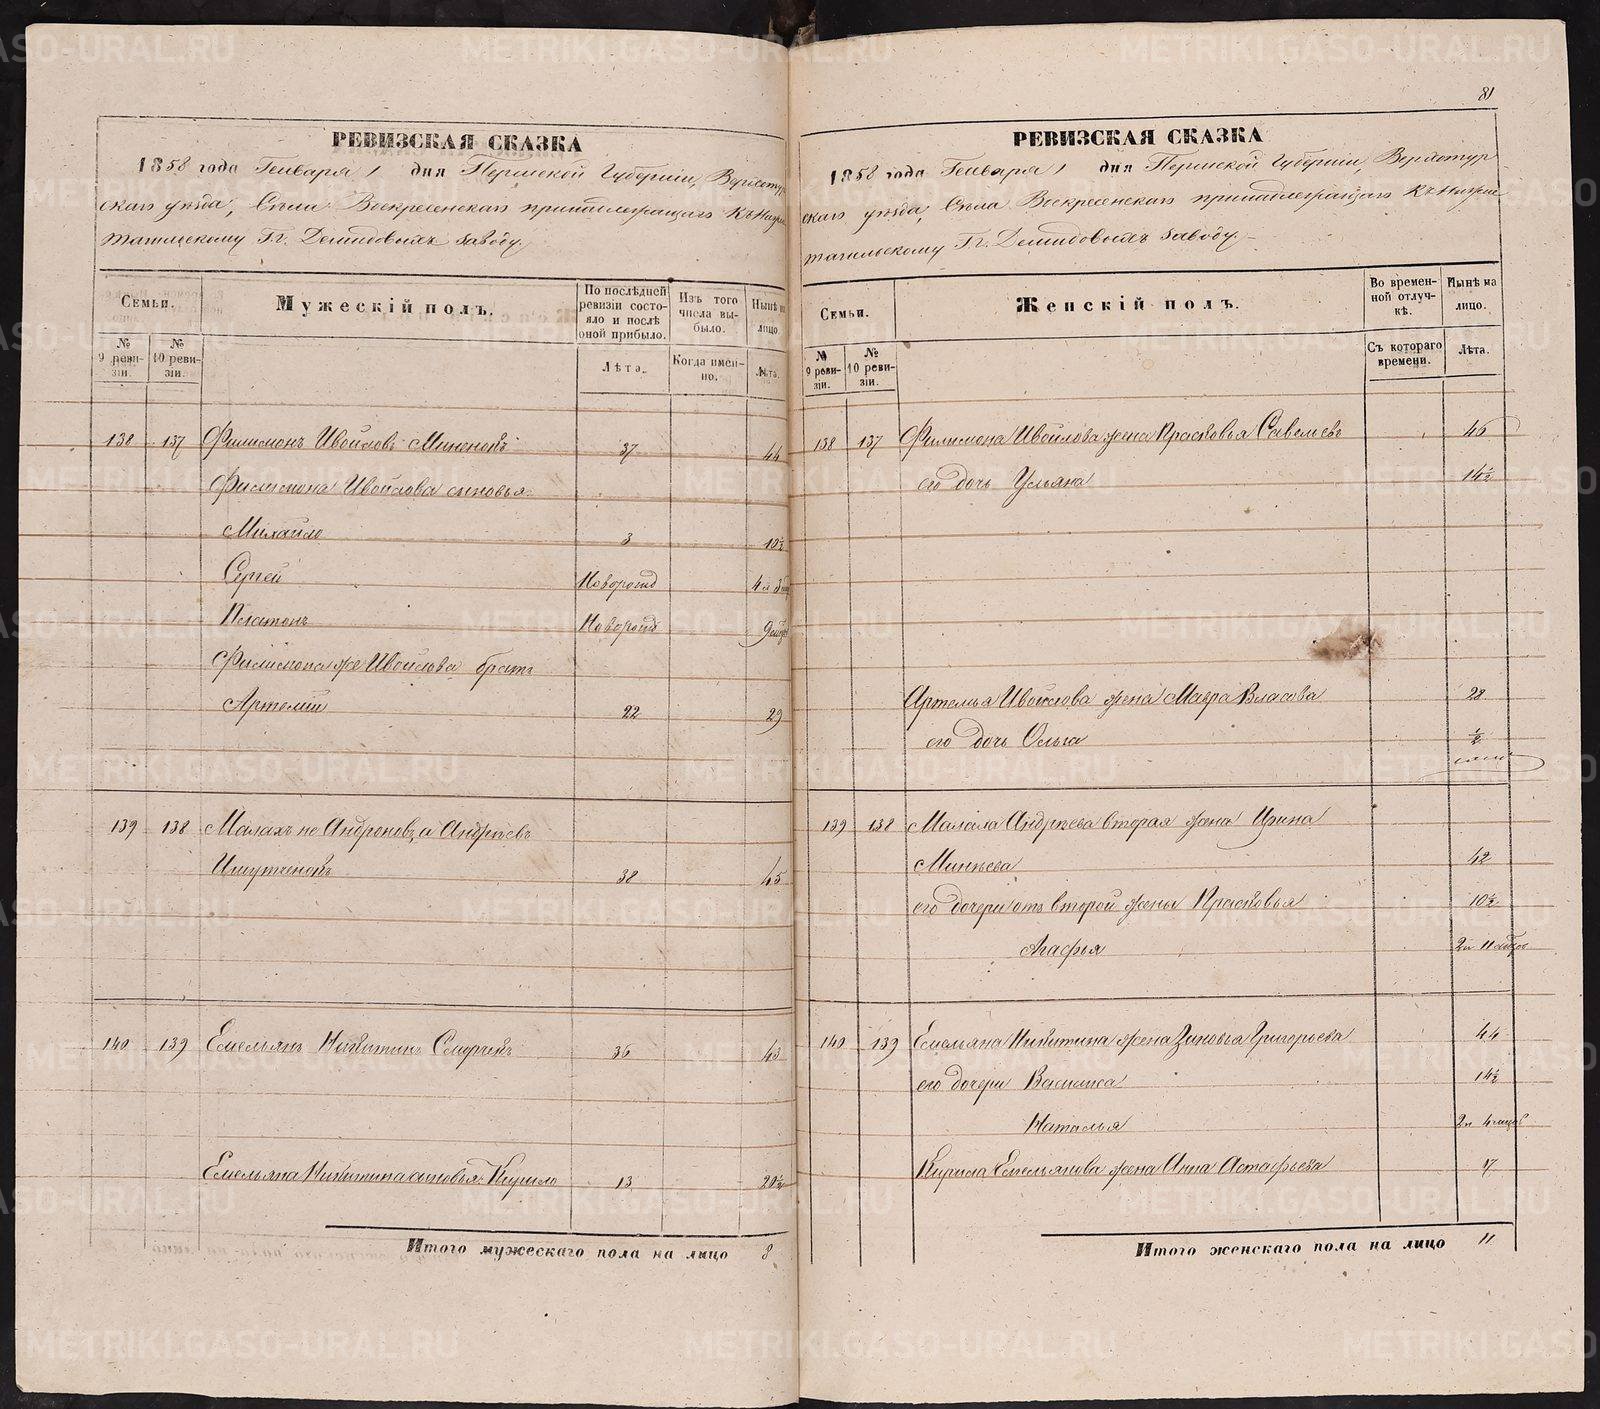 РЕВИЗСКАЯ СКАЗКА
1858 года Генваря 1 дня Пермской Губернии, Верхотур
скаго уѣзда, Села Воскресенскаго принадлежащаго къ Нижне
тагильскому Г.г. Демидовыхъ заводу
Семьи.
Мужескій полъ.
По послѣдней ревизіи состояло и послѣ оной прибыло.
Изъ того числа выбыло.
Нынѣ на лицо.
№ 9 ревизіи.
№ 10 ревизіи.
Лѣта.
Когда именно.
Лѣта.
138 137 Филимонъ Ивойловъ 37 44
Филимона Ивойлова сыновья
Михайло 3 10½
Сергей Новорожд 4 и 3
Платонъ Новорожд 9
Филимона же Ивойлова братъ
Артемий 22 29
139 138 Малахъ не Андроновъ, а Андреевъ
38 45
140 139 Емельянъ Никитинъ 36 43
Емельяна Никитина сыновья Кирило 13 20½
Итого мужескаго пола на лицо 8
81
РЕВИЗСКАЯ СКАЗКА
1858 года Генваря 1 дня Пермской Губернии, Верхотур
скаго уѣзда, Села Воскресенскаго принадлежащаго къ Нижне
тагильскому Г.г. Демидовыхъ заводу.
Семьи.
Женскій полъ.
Во временной отлучкѣ.
Нынѣ на лицо.
№ 9 ревизіи.
№ 10 ревизіи.
Съ котораго времени.
Лѣта.
138 137 Филимона Ивойлова жена Прасковья Савельева 46
его дочь Ульяна 14½
Артемья Ивойлова жена Мавра Власова 28
его дочь Ольга ½
139 138 Малаха Андреева вторая жена Ирина
Минѣева 42
его дочери отъ второй жены Прасковья 10½
Агафья 2 и 11 мѣсяцов
140 139 Емельяна Никитина жена Зиновья Григорьева 44
его дочери Василиса 14½
Наталья 2 и 4 месяцов
Кирила Емельянова жена Анна Астафьева 17
Итого женскаго пола на лицо 11
METRIKI.GASO-URAL.RU